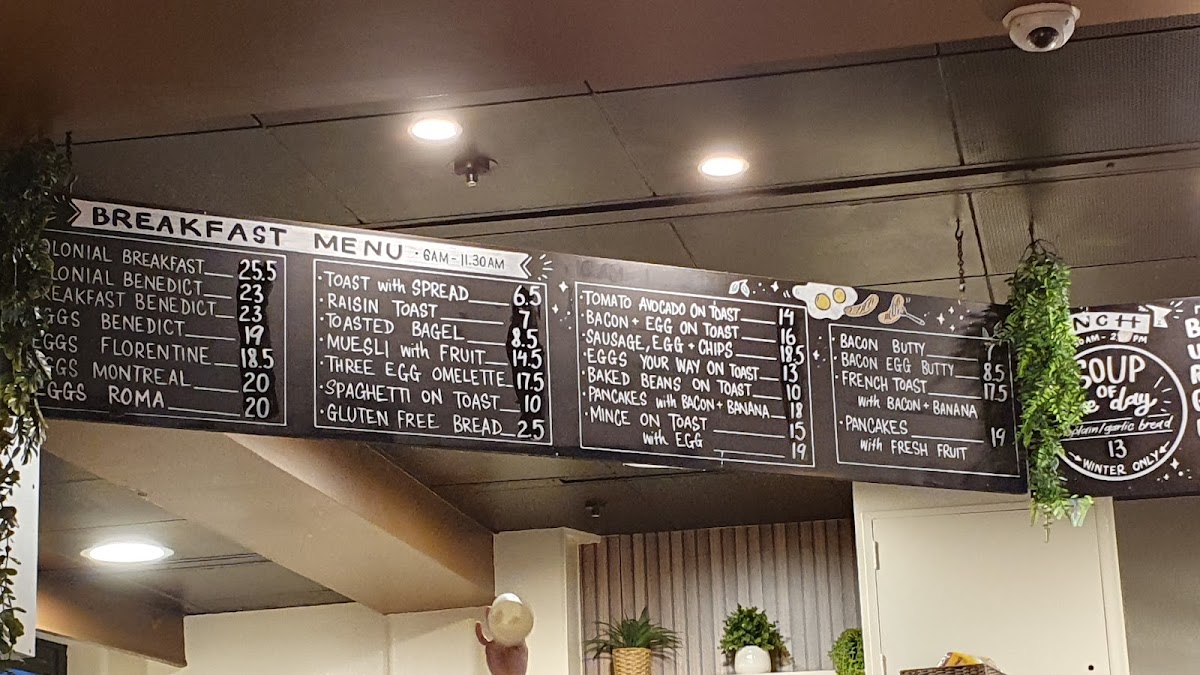 BREAKFAST MENU · 6AM - 11.30AM
OLONIAL BREAKFAST 25.5
OLONIAL BENEDICT 23
REAKFAST BENEDICT 23
EGGS BENEDICT 19
EGGS FLORENTINE 18.5
EGGS MONTREAL 20
EGGS ROMA 20
· TOAST with SPREAD 6.5
· RAISIN TOAST 7
· TOASTED BAGEL 8.5
· MUESLI with FRUIT 14.5
· THREE EGG OMELETTE 17.5
· SPAGHETTI ON TOAST 10
· GLUTEN FREE BREAD 2.5
· TOMATO AVOCADO ON TOAST 14
· BACON + EGG ON TOAST 16
· SAUSAGE, EGG + CHIPS 18.5
· EGGS YOUR WAY ON TOAST 13
· BAKED BEANS ON TOAST 10
· PANCAKES with BACON + BANANA 18
· MINCE ON TOAST 15
with EGG 19
· BACON BUTTY 7
· BACON EGG BUTTY 8.5
· FRENCH TOAST 17.5
with BACON + BANANA
· PANCAKES 19
with FRESH FRUIT
NCH
SOUP
OF
day
plain/garlic bread
13
WINTER ONLY